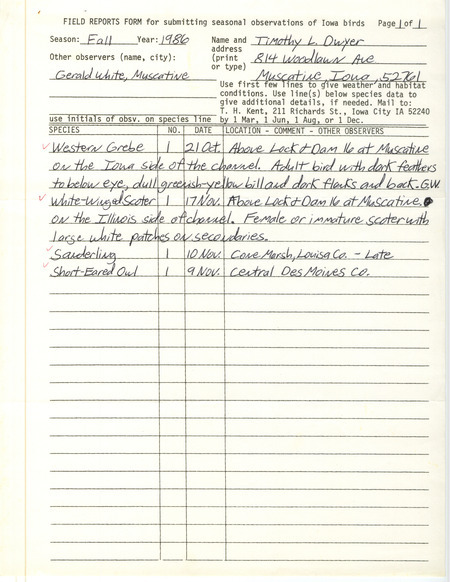 FIELD REPORTS FORM for submitting seasonal observations of Iowa birds Page 1 of 1
Season: Fall Year: 1986 Name and address (print or type) Timothy L. Dwyer
Other observers (name, city): 814 Woodlawn Ave
Gerald White, Muscatine Muscatine, Iowa, 52761
Use first few lines to give weather and habitat
conditions. Use line(s) below species data to
give additional details, if needed. Mail to:
T. H. Kent, 211 Richards St., Iowa City IA 52240
use initials of obsv. on species line by 1 Mar, 1 Jun, 1 Aug, or 1 Dec.
SPECIES NO. DATE LOCATION - COMMENT - OTHER OBSERVERS
Western Grebe 1 21 Oct. Above Lock & Dam 16 at Muscatine
on the Iowa side of the channel. Adult bird with dark feathers
to below eye, dull greenish-yellow bill and dark flanks and back. G.W.
White-Winged Scoter 1 17 Nov. Above Lock & Dam 16 at Muscatine
on the Illinois side of channel. Female or immature scoter with
large white patches on secondaries.
Sanderling 1 10 Nov. Cone Marsh, Louisa Co. - Late
Short-Eared Owl 1 9 Nov. Central Des Moines Co.